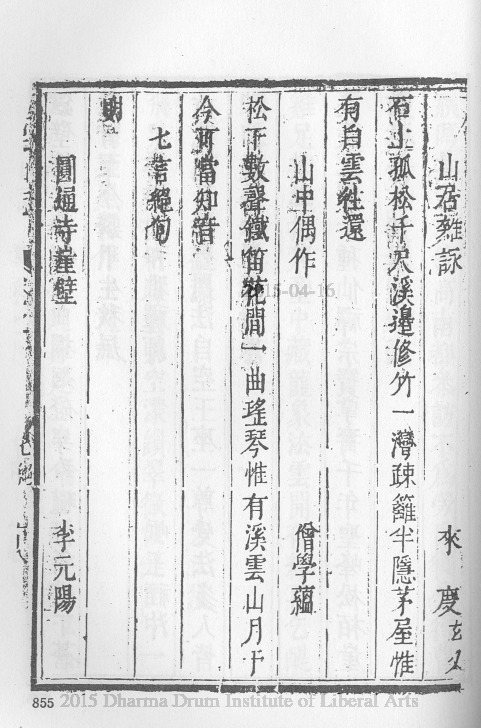 山居雜詠 來慶 玄又
石上孤松千尺溪邊修竹一灣疎籬半隱茅屋惟
有白雲徃還
山中偶作 僧學蘊
松下數聲鐵笛花間一曲瑤琴惟有溪雲山月于
今可當知音
七言絕句
明
圓通寺崖壁 李元陽
七絕
2015-04-16
855
2015 Dharma Drum Institute of Liberal Arts